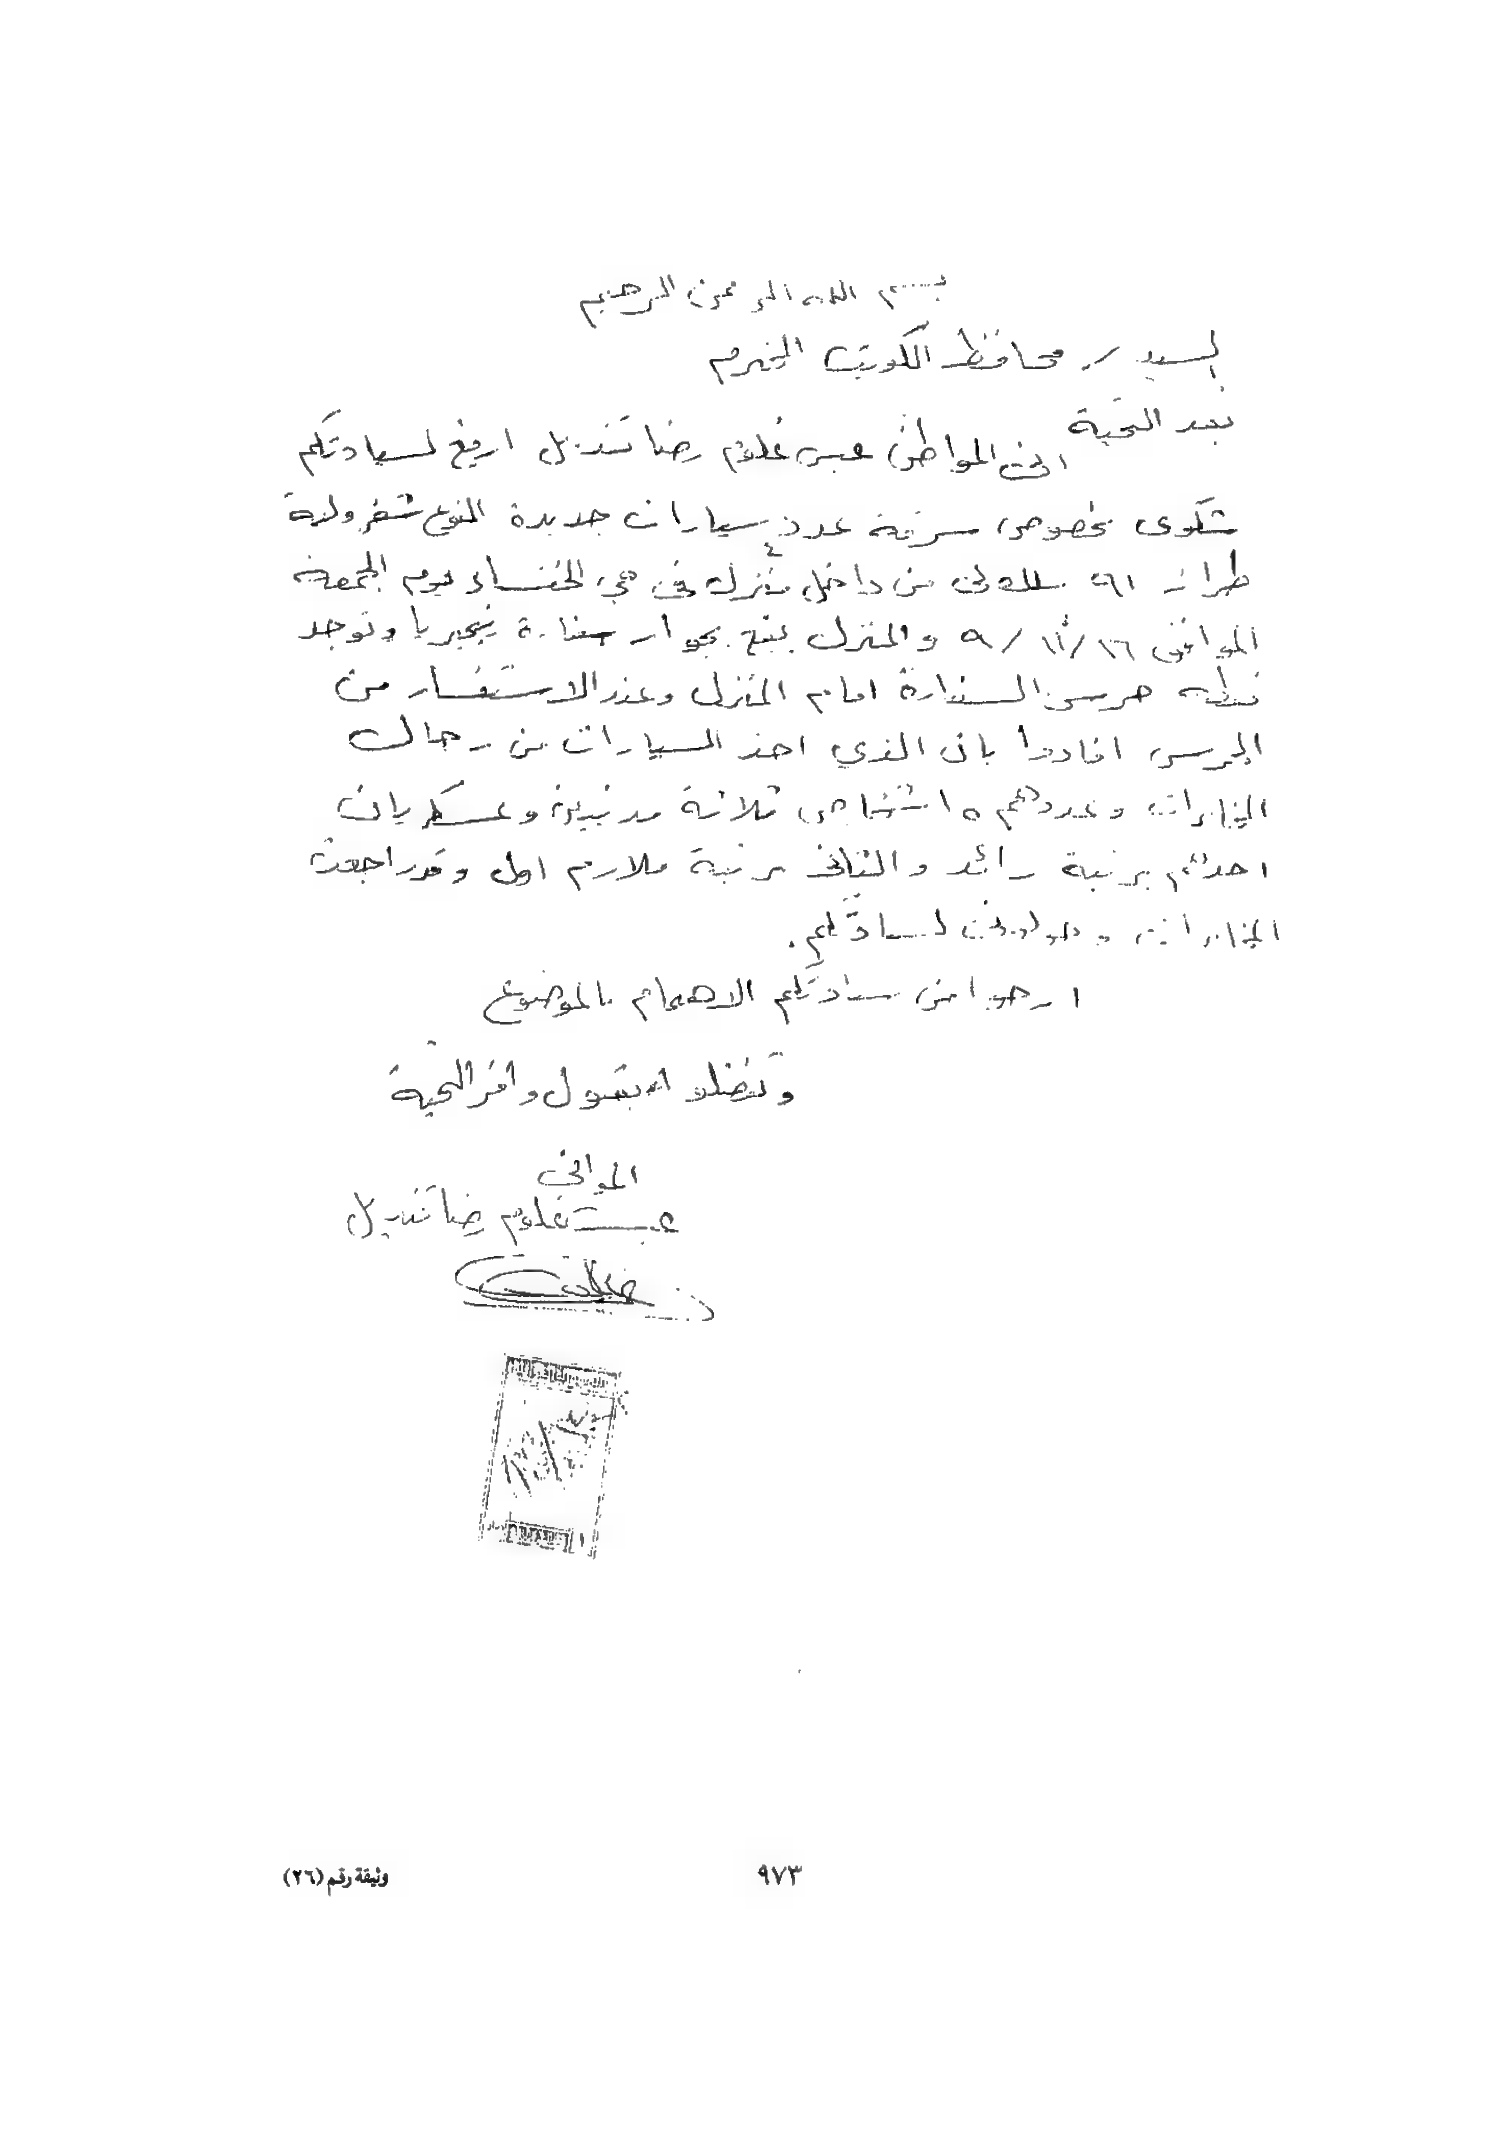 بسم الله الرحمن الرحيم
السيد / محافظ الكويت المحترم
بعد التحية
اني المواطن عباس غلوم رضا قنديل ارفع لسيادتكم
شكوى بخصوص سرقة عدد ٤ سيارات جديدة النوع شفرولية
طراز ٩١ من داخل منزل في حي الخنساء يوم الجمعة
الموافق ١٦ / ١١ / ٩٠ والمنزل يقع بجوار سفارة نيجيريا وتوجد
نقطه حرس السفارة امام المنزل وعند الاستفسار من
الحرس افادوا بان الذي اخذ السيارات من رجال
المخابرات وعددهم ٥ اشخاص ثلاثة مدنيين وعسكريان
احدهم برتبة رائد والثاني برتبة ملازم اول وقد راجعت
المخابرات وحولوني لسيادتكم .
ارجوا من سيادتكم الاهتمام بالموضوع
وتفضلوا بقبول وافر التحية
المواطن
عباس غلوم رضا قنديل
٩٧٣
وثيقة رقم (٢٦)